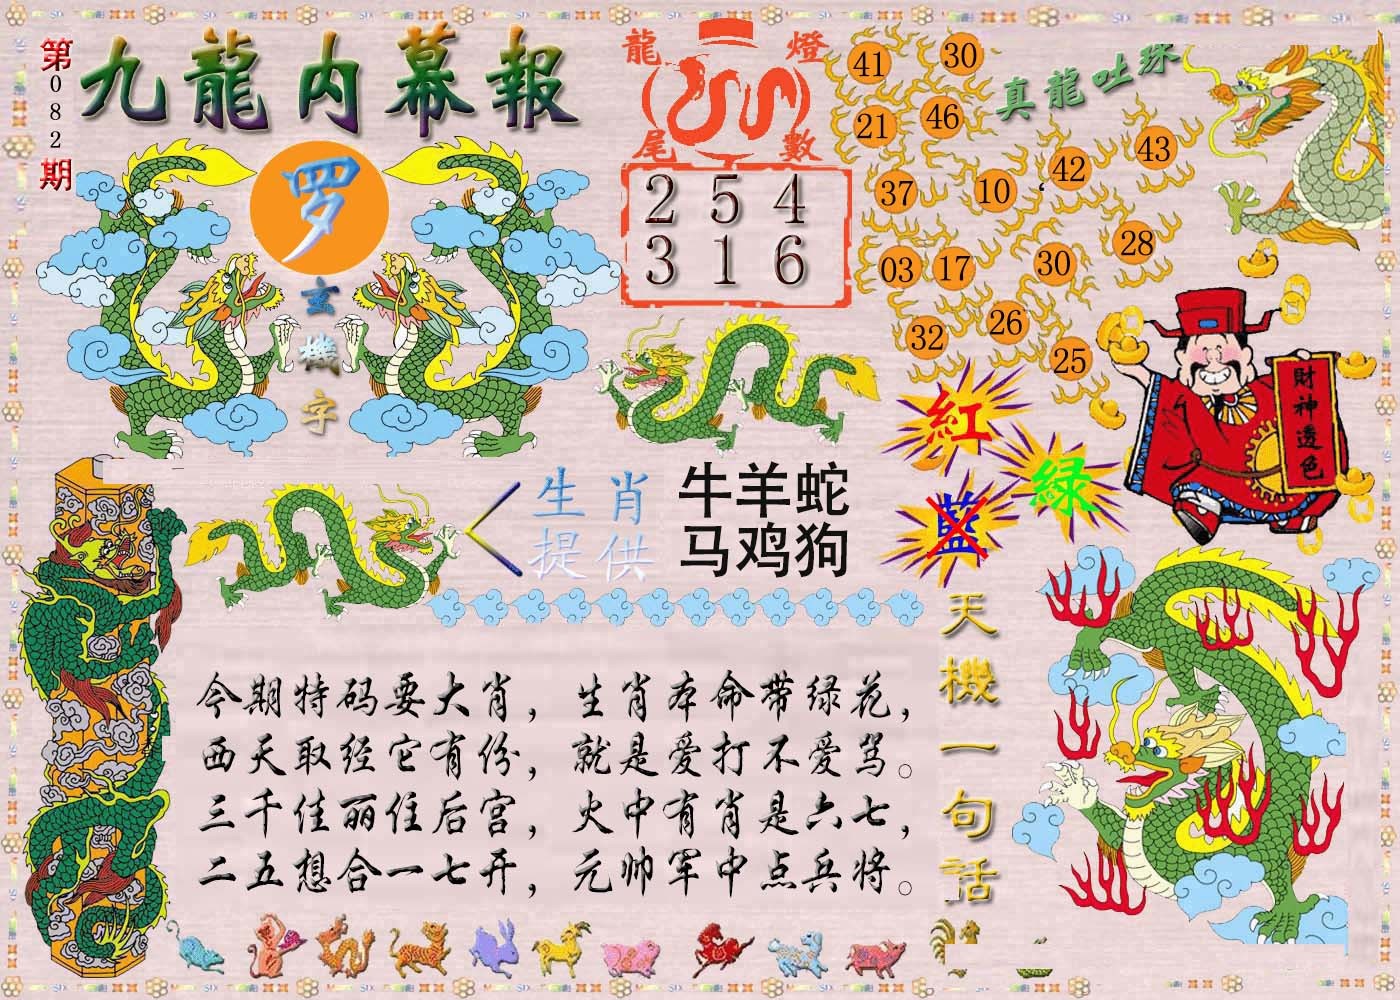 第082期
九龍内幕報
罗
玄機字
龍燈
尾數
2 5 4
3 1 6
真龍吐珠
41
30
21
46
43
42
37
10
28
03
17
30
32
26
25
財神透色
紅
绿
藍
生肖
提供
牛羊蛇
马鸡狗
天機一句话
今期特码要大肖，生肖本命带绿花，
西天取经它有份，就是爱打不爱骂。
三千佳丽住后宫，火中有肖是六七，
二五想合一七开，元帅军中点兵将。